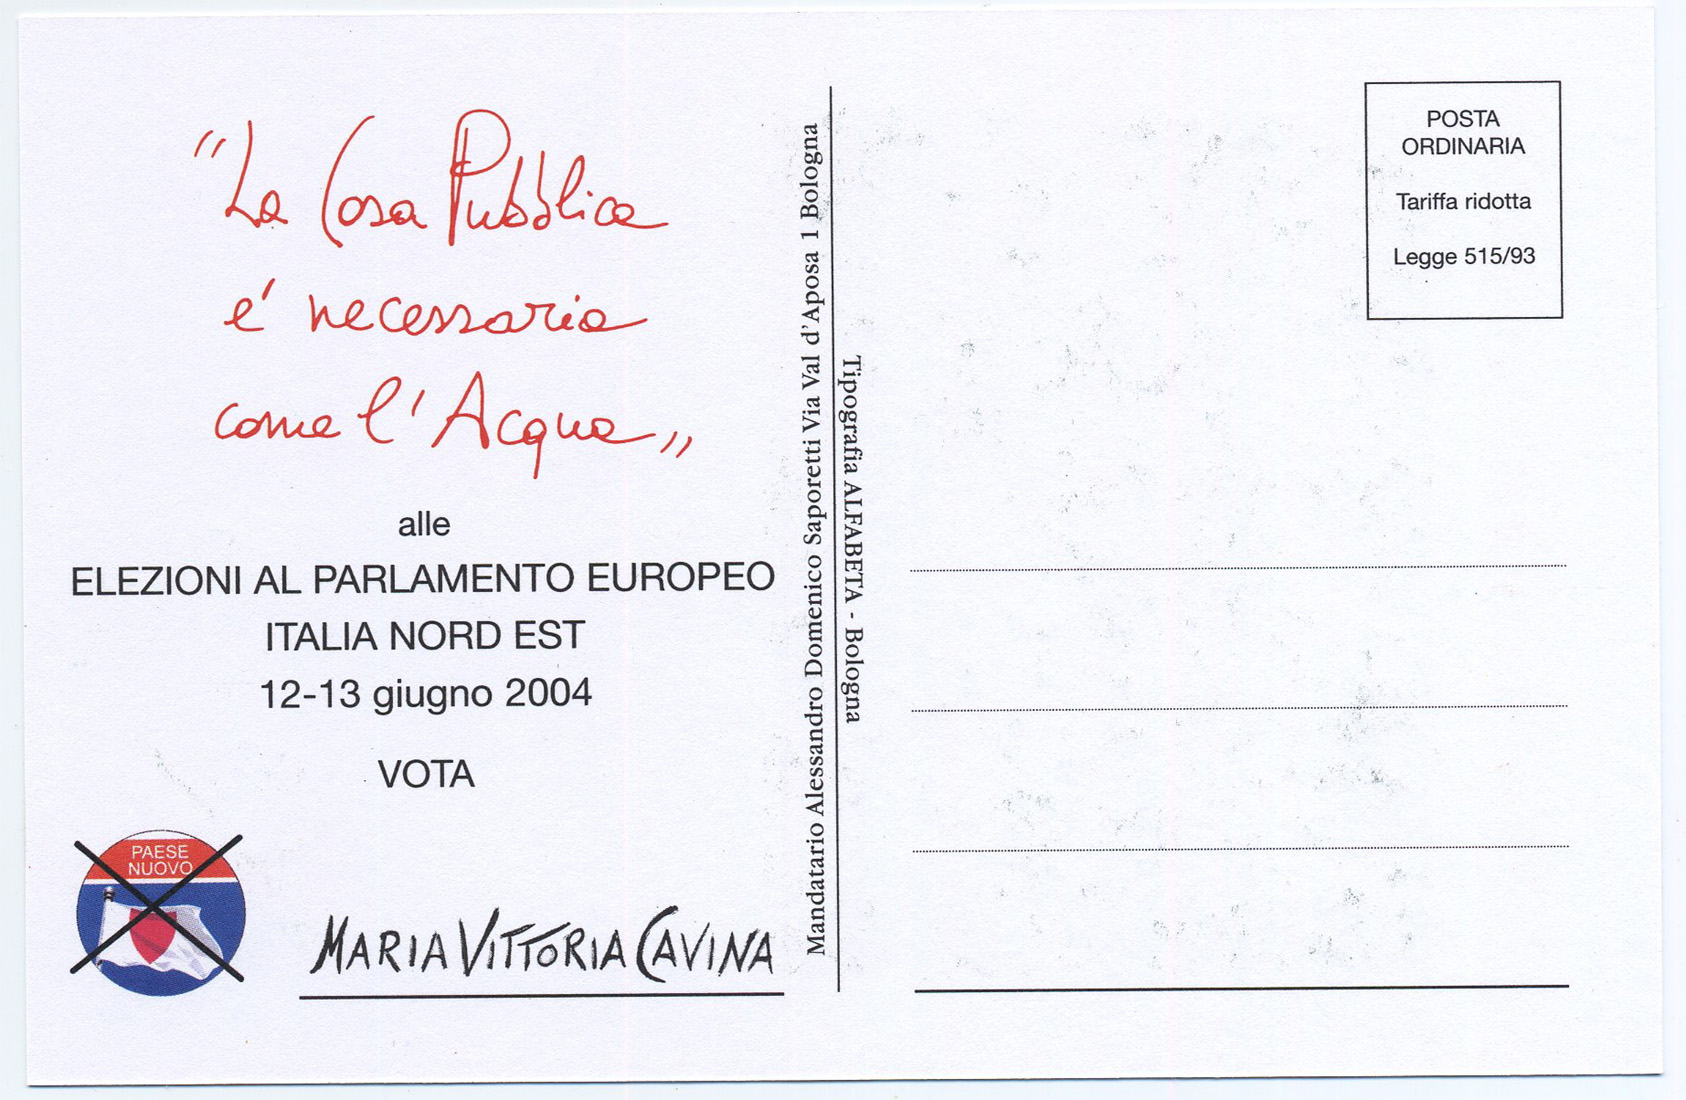 "La Cosa Pubblica
e' necessaria
come l'Acqua„
alle
ELEZIONI AL PARLAMENTO EUROPEO
ITALIA NORD EST
12-13 giugno 2004
VOTA
PAESE
NUOVO
MARIA VITTORIA CAVINA
Mandatario Alessandro Domenico Saporetti Via Val d'Aposa 1 Bologna
Tipografia ALFABETA - Bologna
POSTA
ORDINARIA
Tariffa ridotta
Legge 515/93